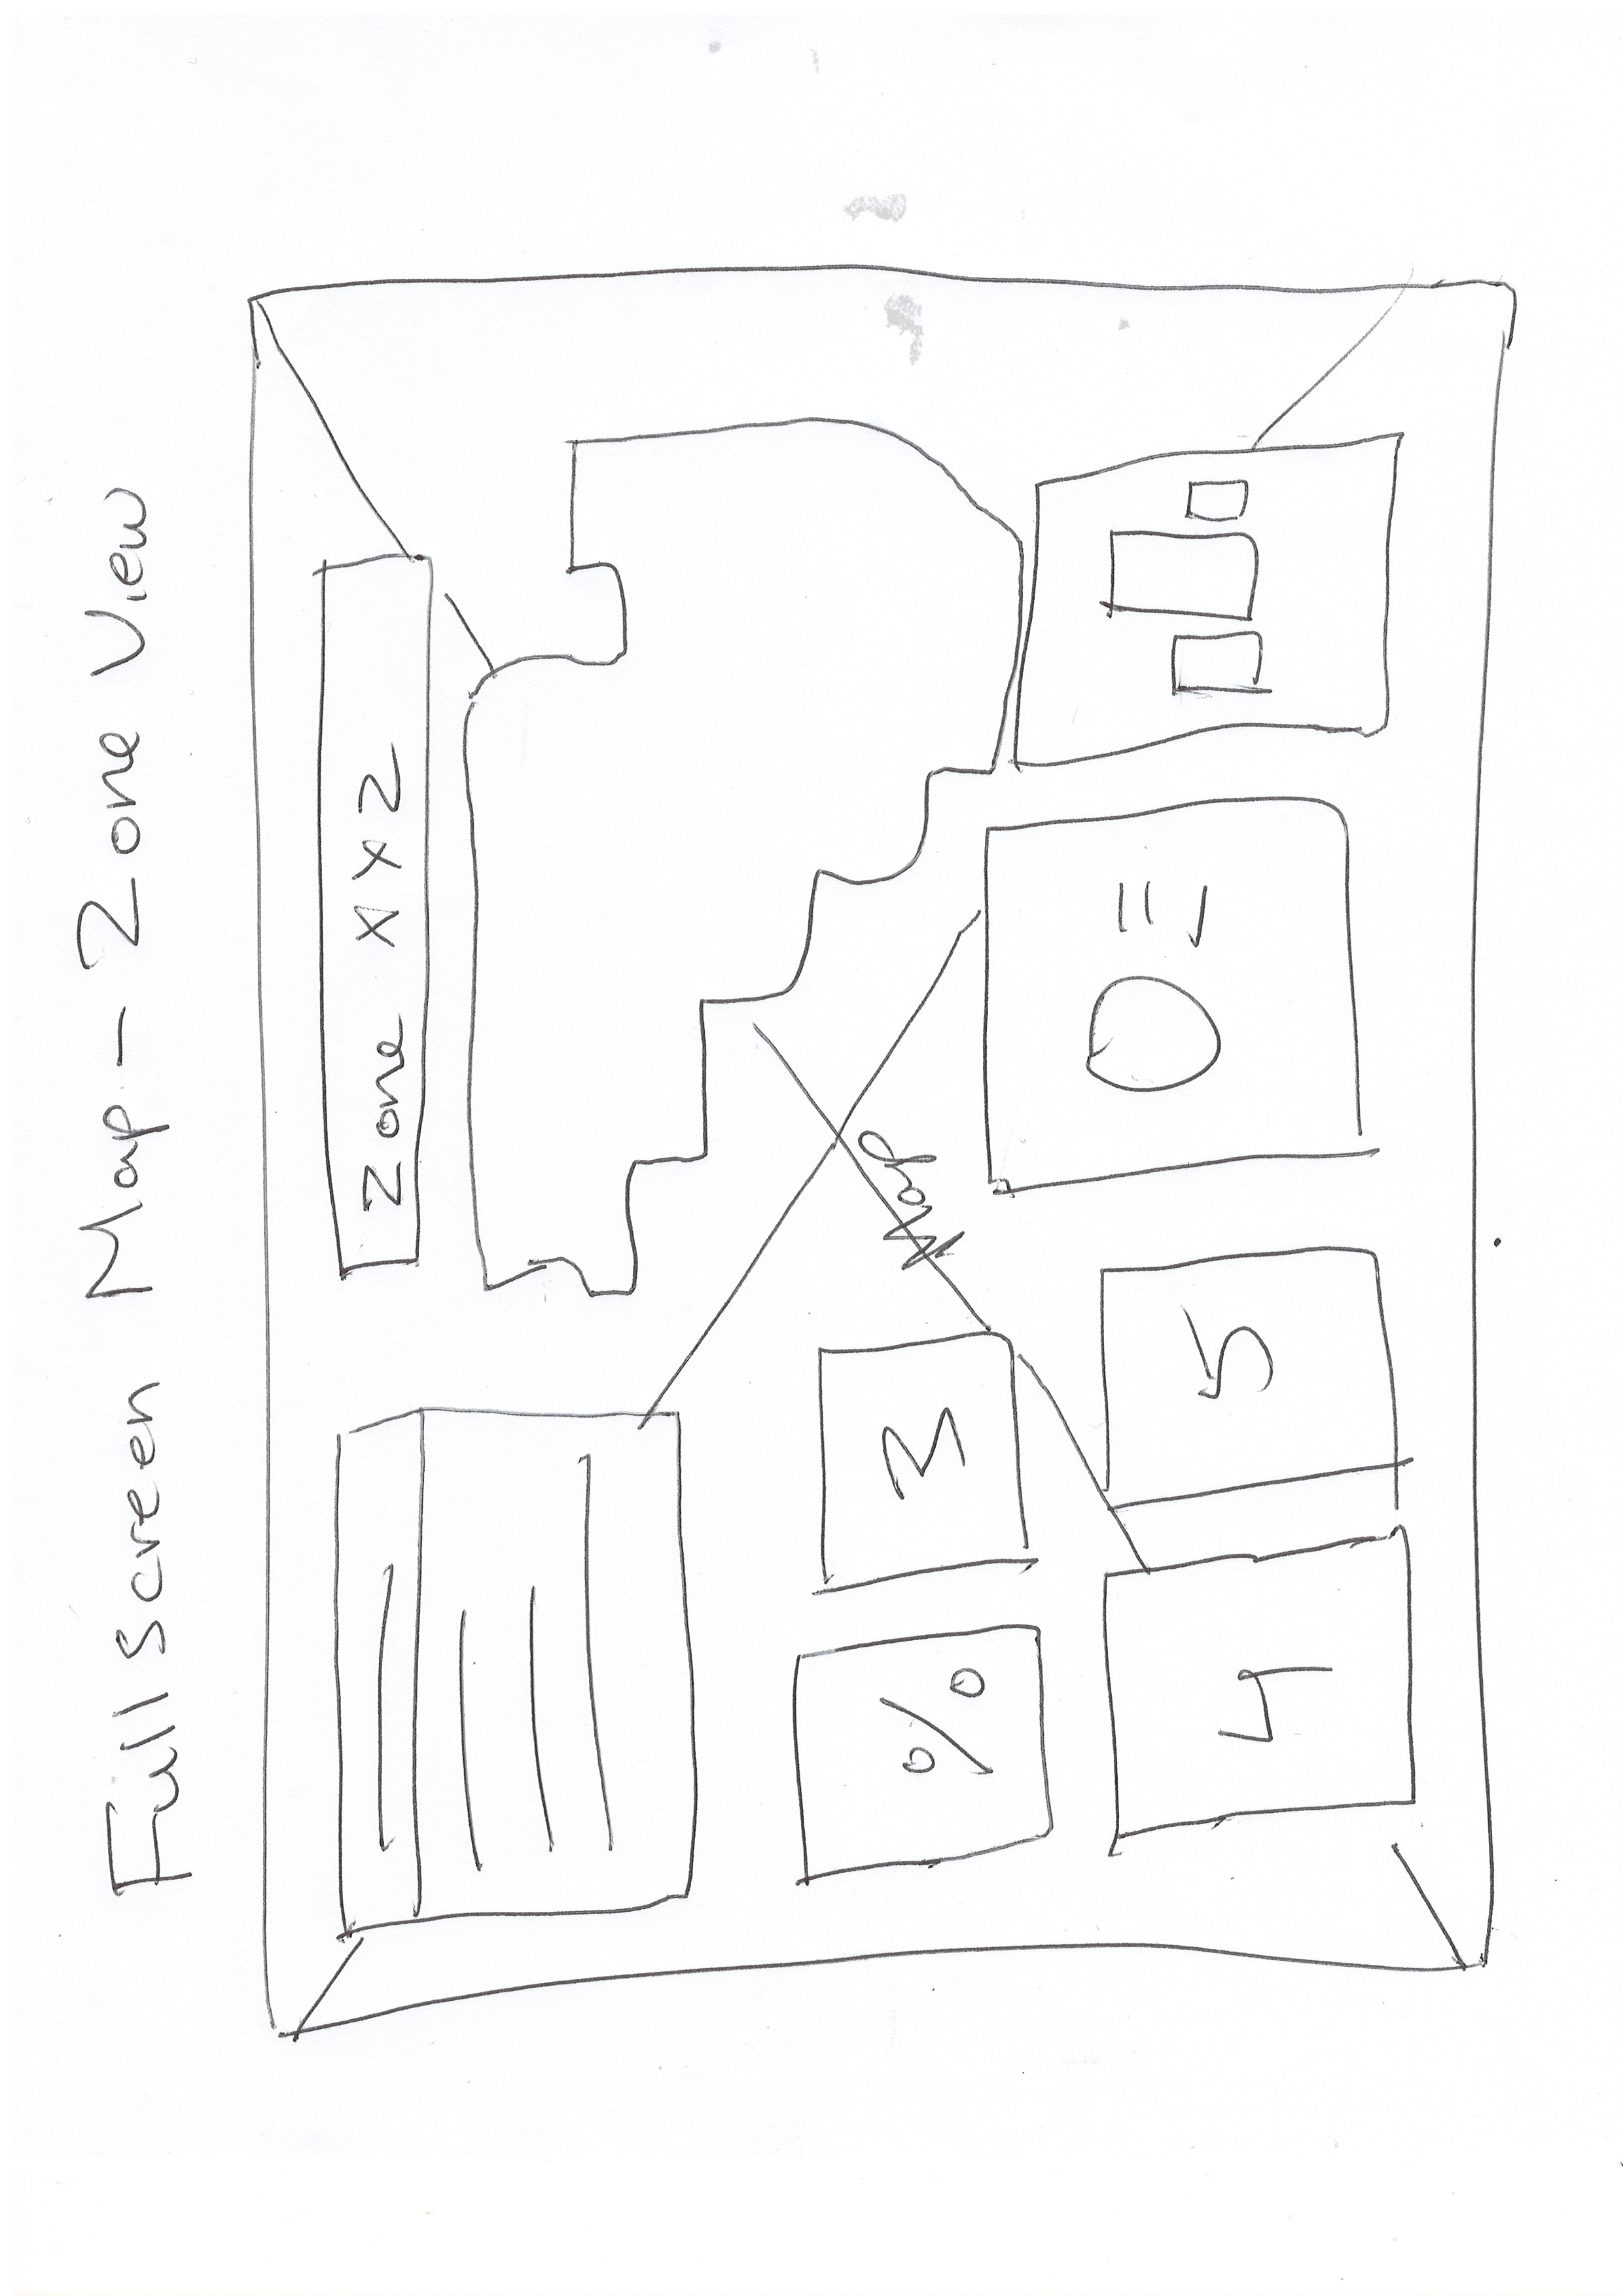 Fullscreen Map - Zone View
Zone XYZ
% 3
Map
4 5